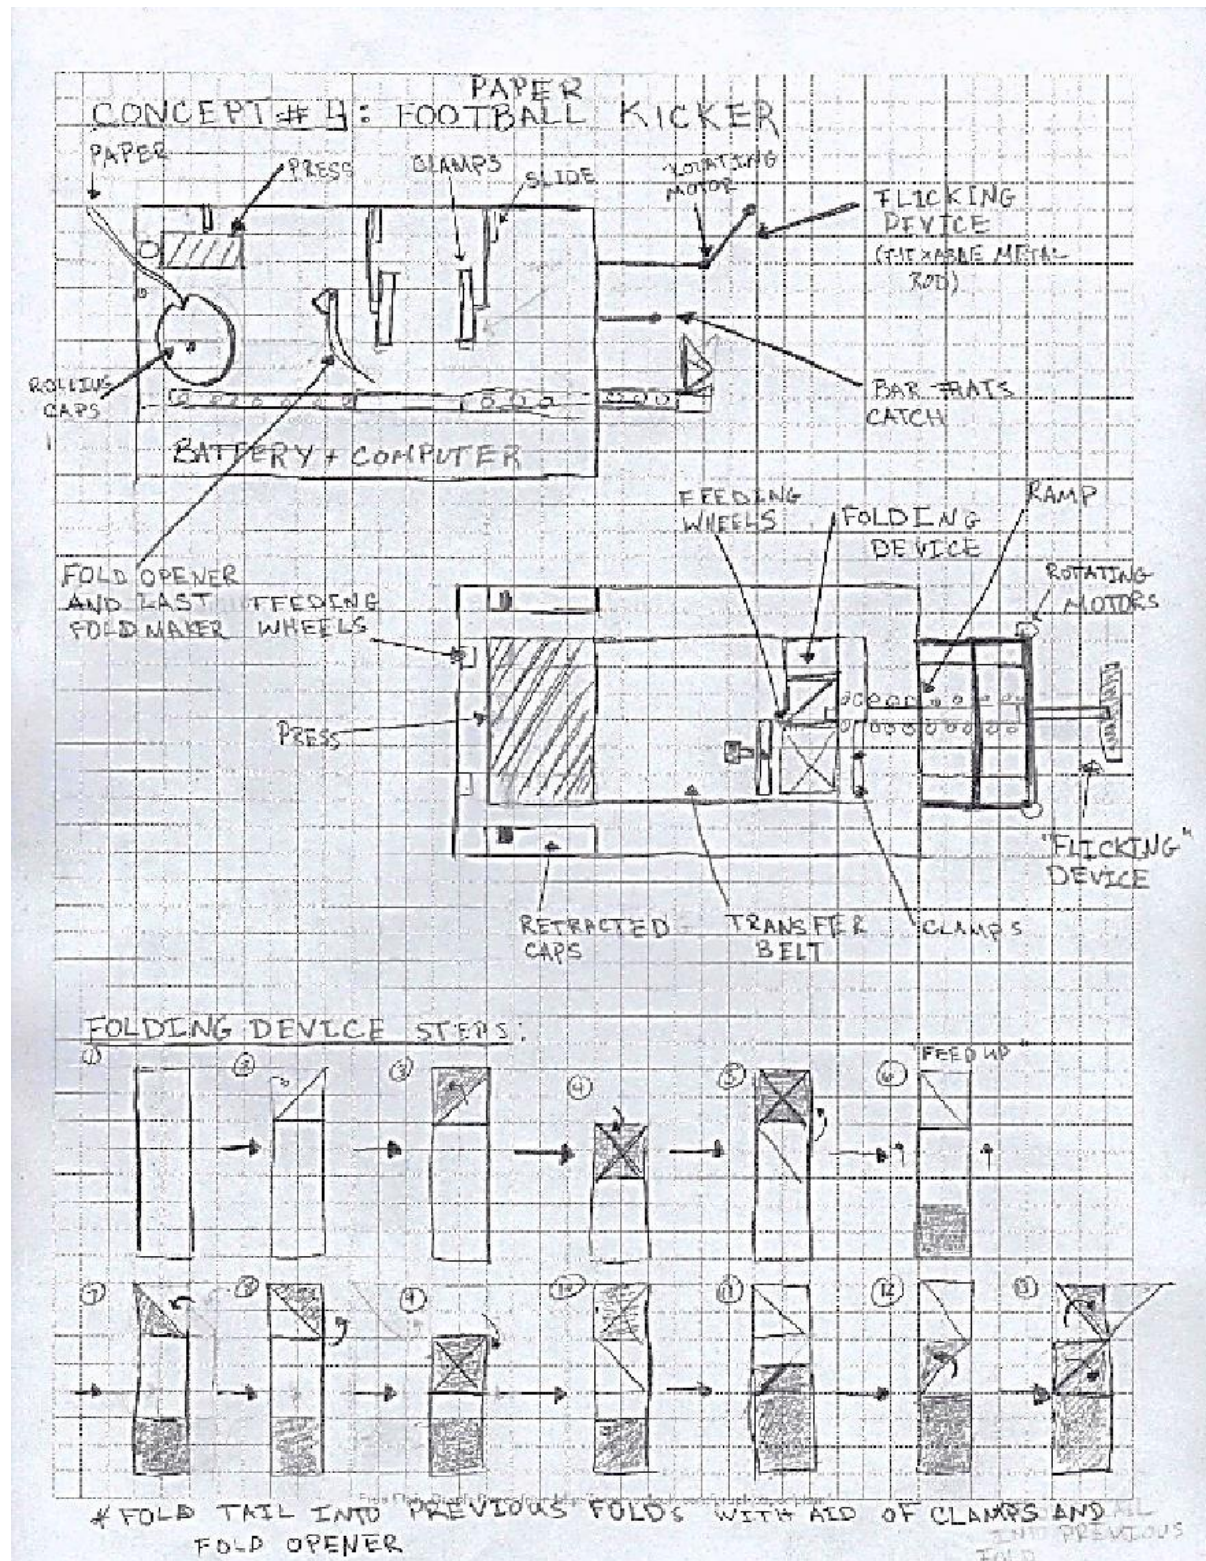 PAPER
CONCEPT # 4: FOOTBALL KICKER
PAPER
PRESS
CLAMPS
SLIDE
ROTATING
MOTOR
FLICKING
DEVICE
METAL
ROD)
ROLLING
CAPS
BAR THATS
CATCH
BATTERY + COMPUTER
FOLD OPENER
AND LAST
FOLD MAKER
FEEDING
WHEELS
FEEDING
WHEELS
FOLDING
DEVICE
RAMP
ROTATING
MOTORS
PRESS
RETRACTED
CAPS
TRANSFER
BELT
CLAMPS
"FLICKING"
DEVICE
FOLDING DEVICE STEPS:
1
2
3
4
5
6
"FEED UP"
7
8
9
10
11
12
13
* FOLD TAIL INTO PREVIOUS FOLDS WITH AID OF CLAMPS AND
FOLD OPENER
INTO PREVIOUS
FOLD